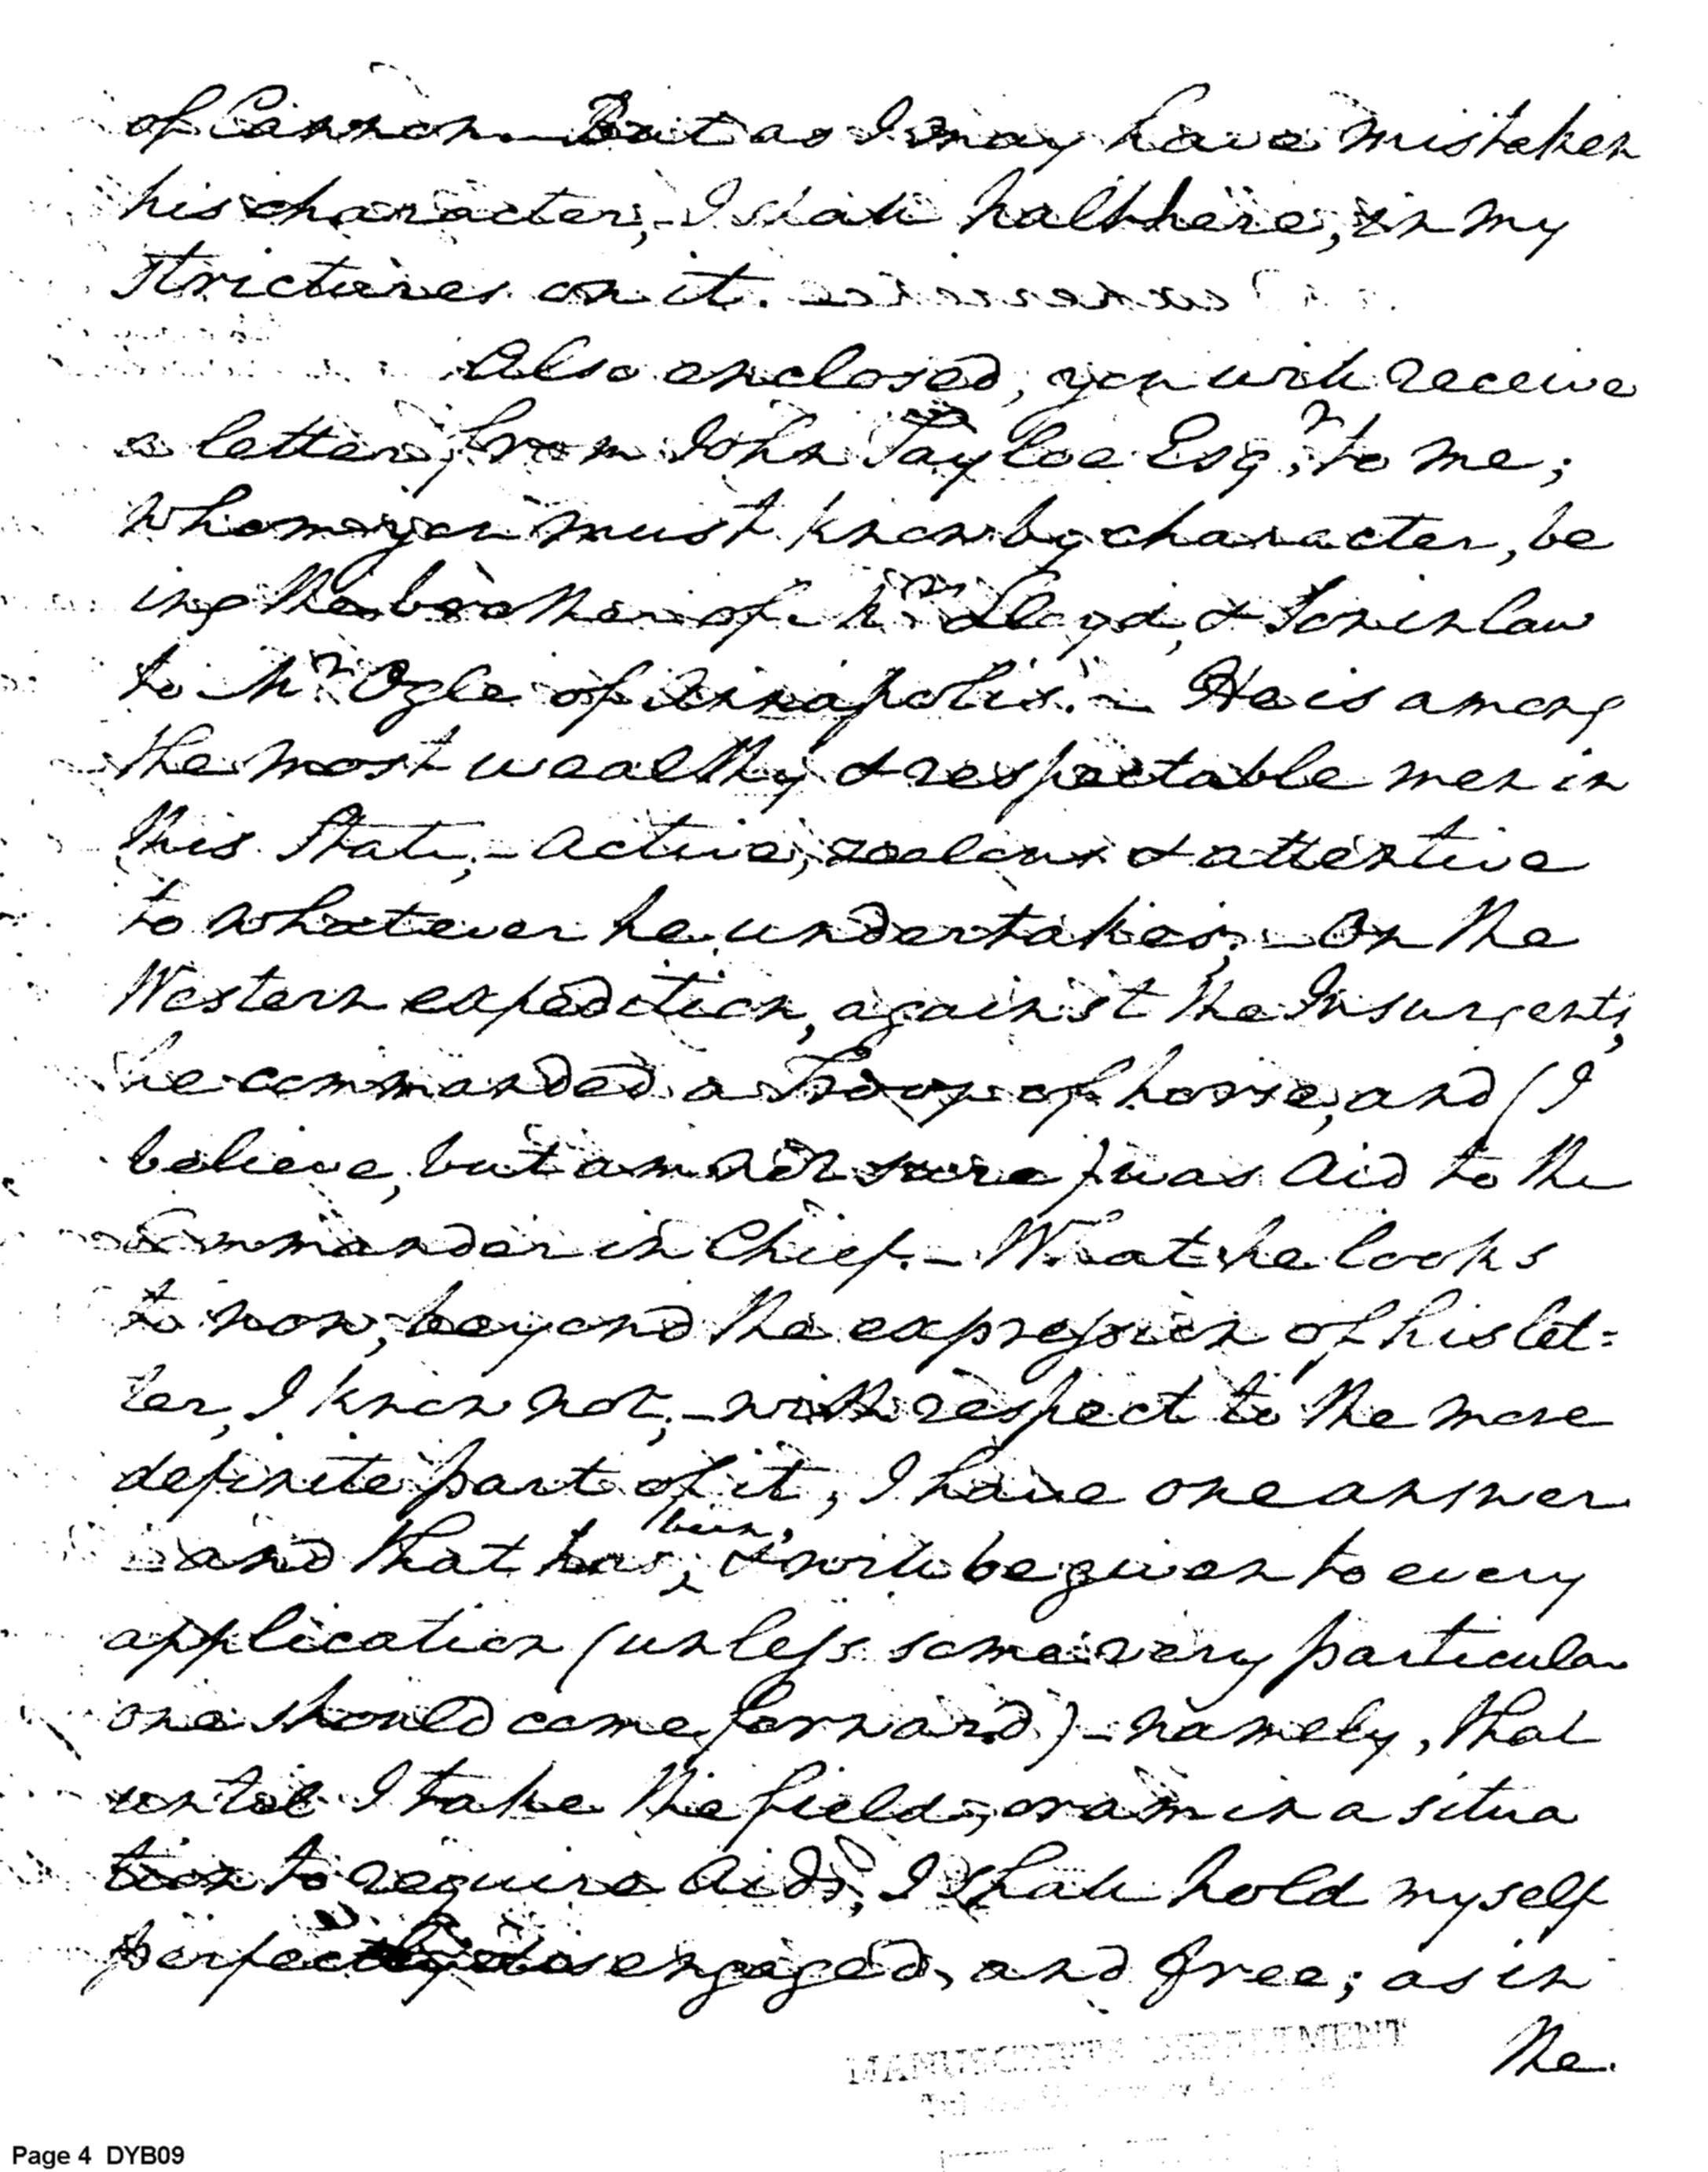 of Cannon.—But as I may have mistaken
his character,—I shall halt here, in my
strictures on it.
Also enclosed, you will receive
a letter from John Tayloe Esqr. to me;
whom you must know by character, be
ing the brother of Mrs. Lloyd, & Son in law
to Mr. Ogle of Annapolis.— He is among
the most wealthy & respectable men in
this State,—active, zealous & attentive
to whatever he undertakes.—On the
Western expedition, against the Insurgents,
he commanded a Troop of horse, and (I
believe, but am not sure) was Aid to the
Commander in Chief.—What he looks
to now, beyond the expression of his let=
ter, I know not;—with respect to the more
definite part of it, I have one answer
—and that has, been, & will be given to every
application (unless some very particular
one should come forward)—namely, that
until I take the field, or am in a situa
tion to require Aids, I shall hold myself
perfectly disengaged, and free; as in
the
MANUSCRIPTS DEPARTMENT
Page 4 DYB09